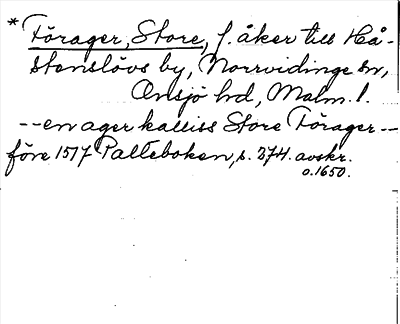 * Törager, Store, f. åker till Hå-
stenslövs by, Norrvidinge sn,
Onsjö hd, Malm. l.
-- en ager kalliss Store Törager --
före 1517 Palteboken, s. 374. avskr.
o. 1650.